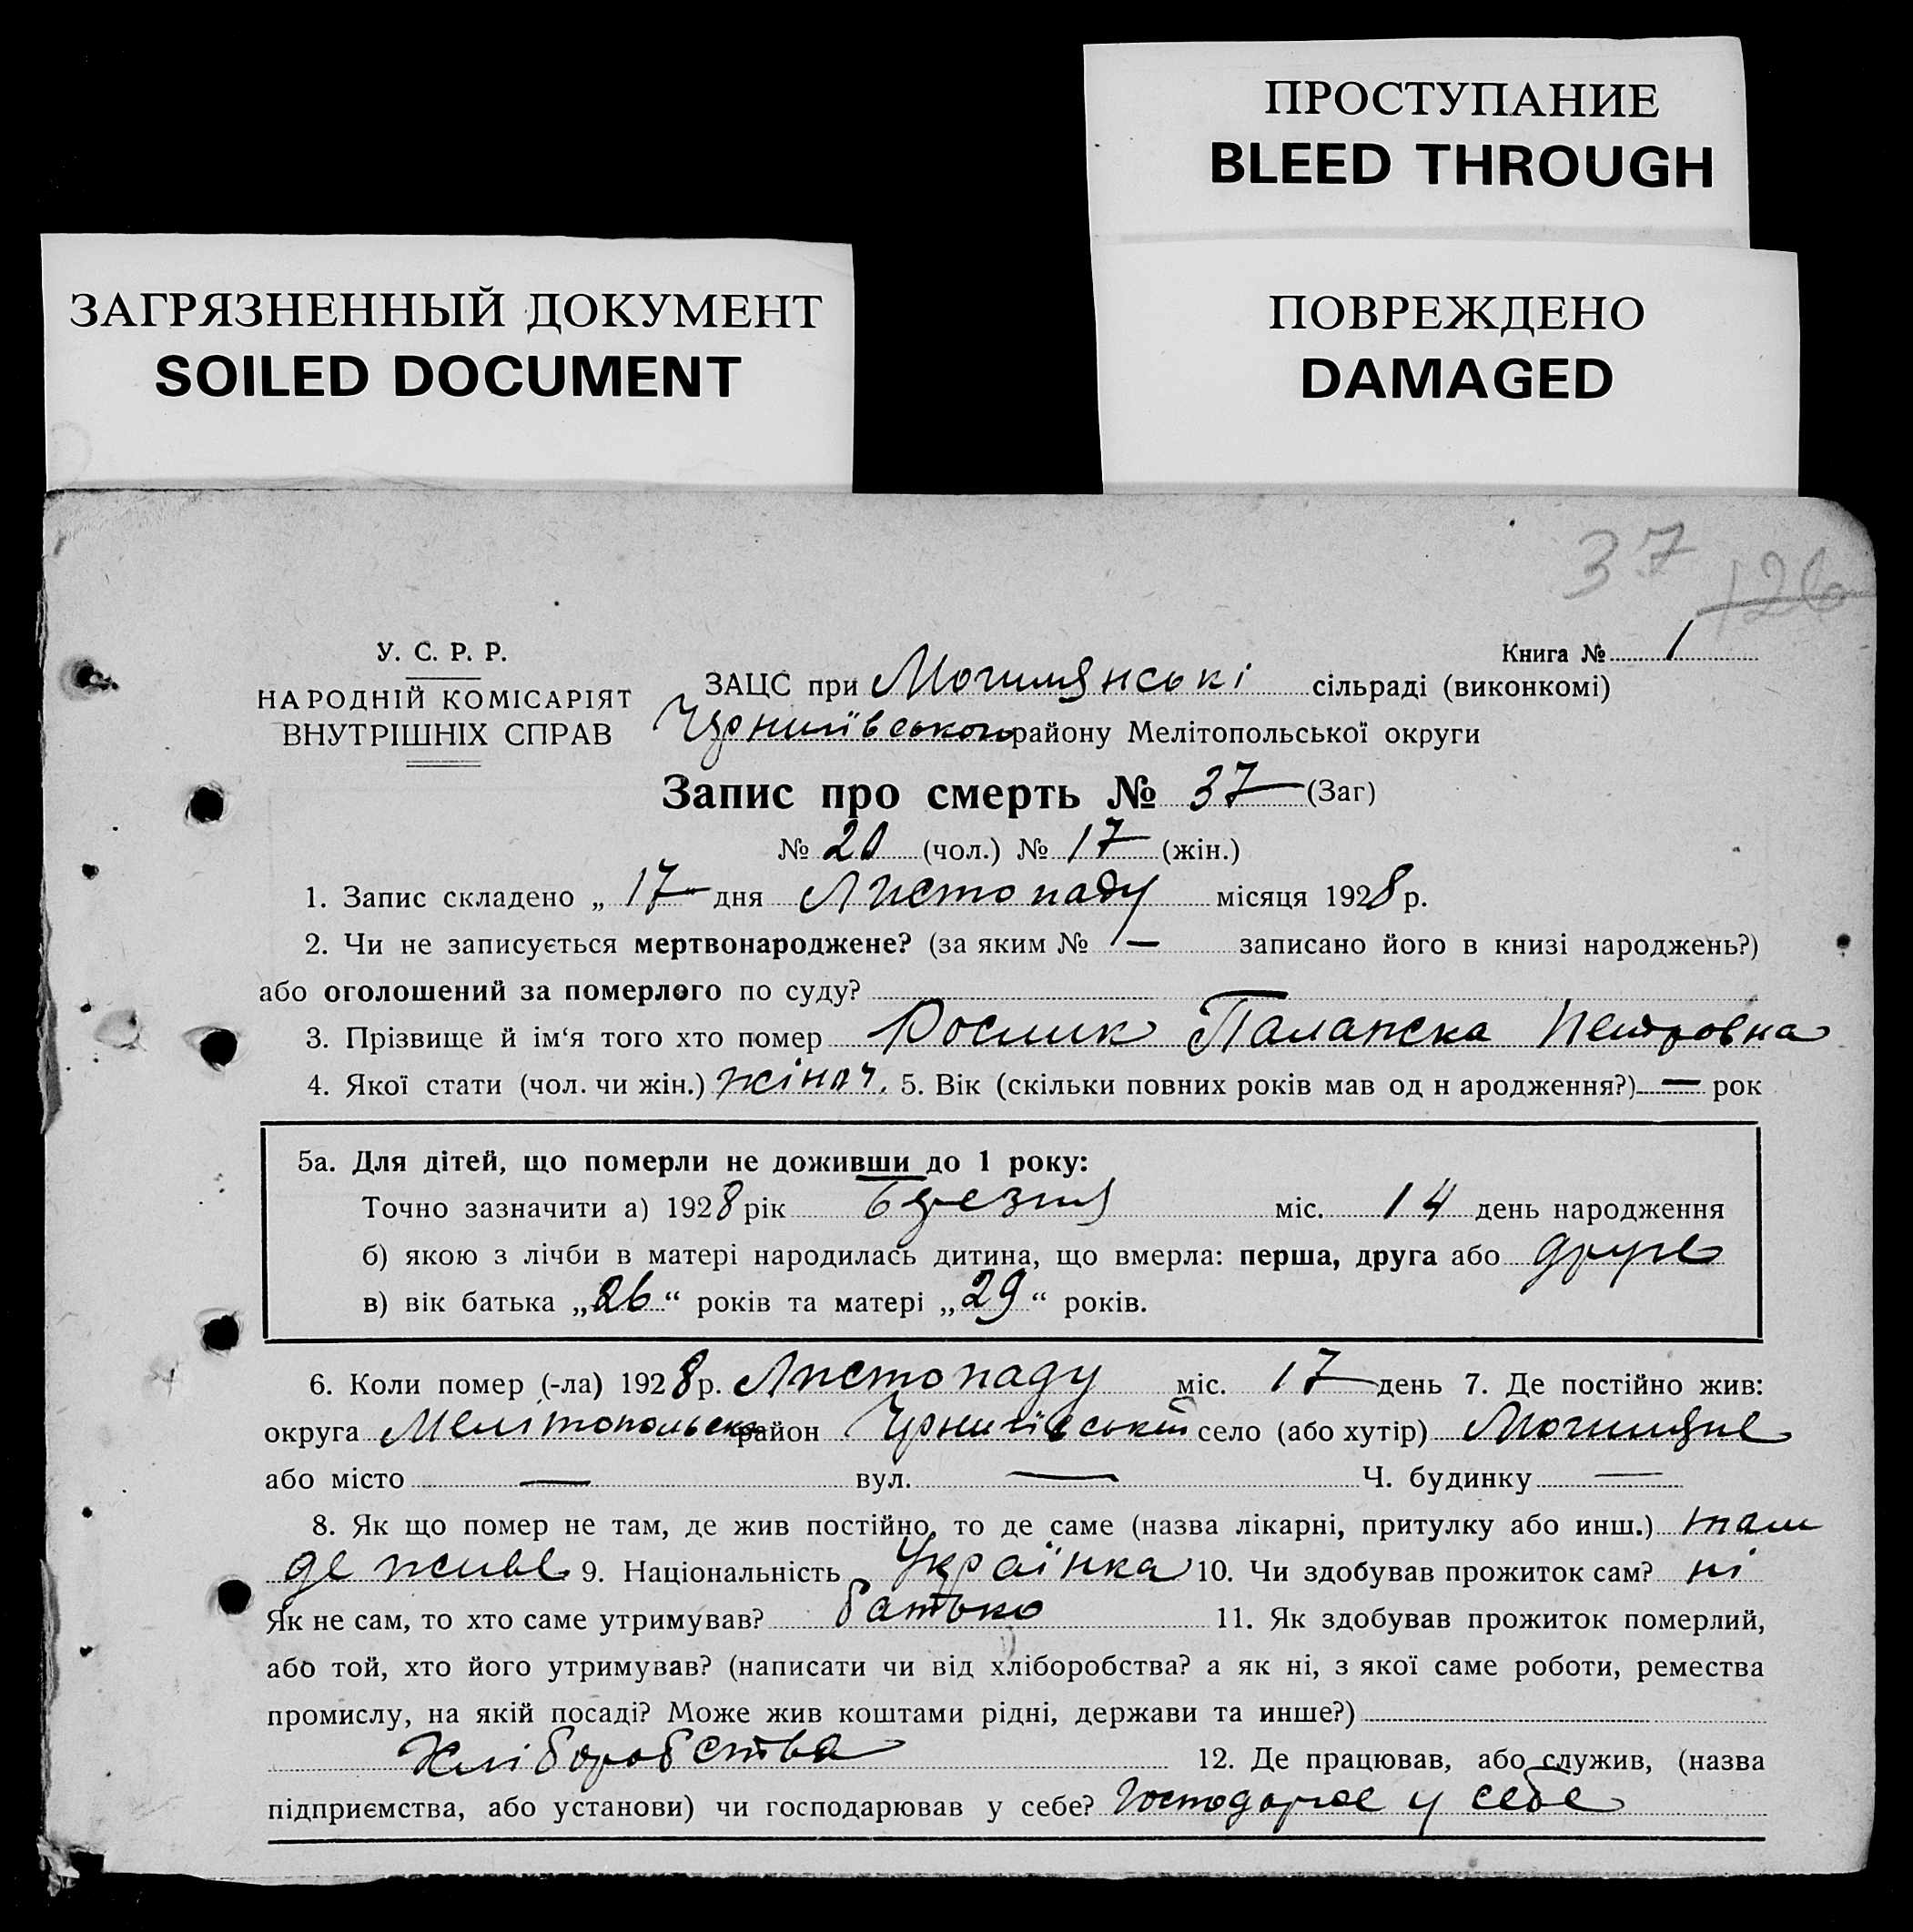 ПРОСТУПАНИЕ
BLEED THROUGH
ЗАГРЯЗНЕННЫЙ ДОКУМЕНТ
SOILED DOCUMENT
ПОВРЕЖДЕНО
DAMAGED
37 126
У. С. Р. Р.
НАРОДНІЙ КОМІСАРІЯТ
ВНУТРІШНІХ СПРАВ
Книга № 1
ЗАЦС при сільраді (виконкомі)
району Мелітопольської округи
Запис про смерть № 37 (Заг)
№ 20 (чол.) № 17 (жін.)
1. Запис складено „ 17 " дня Листопаду місяця 1928 р.
2. Чи не записується мертвонароджене? (за яким № — записано його в книзі народжень?)
або оголошений за померлого по суду?
3. Прізвище й ім'я того хто помер Палажка Петровна
4. Якої стати (чол. чи жін.) жіноч. 5. Вік (скільки повних років мав од н ародження?) — рок
5а. Для дітей, що померли не доживши до 1 року:
Точно зазначити а) 1928 рік березня міс. 14 день народження
б) якою з лічби в матері народилась дитина, що вмерла: перша, друга або друге
в) вік батька „26“ років та матері „29“ років.
6. Коли помер (-ла) 1928 р. Листопаду міс. 17 день 7. Де постійно жив:
округа Мелітопольська район село (або хутір)
або місто — вул. — Ч. будинку —
8. Як що помер не там, де жив постійно, то де саме (назва лікарні, притулку або инш.) там
де живе 9. Національність Українка 10. Чи здобував прожиток сам? ні
Як не сам, то хто саме утримував? батько 11. Як здобував прожиток померлий,
або той, хто його утримував? (написати чи від хліборобства? а як ні, з якої саме роботи, ремества
промислу, на якій посаді? Може жив коштами рідні, держави та инше?)
Хліборобства 12. Де працював, або служив, (назва
підприємства, або установи) чи господарював у себе? у себе